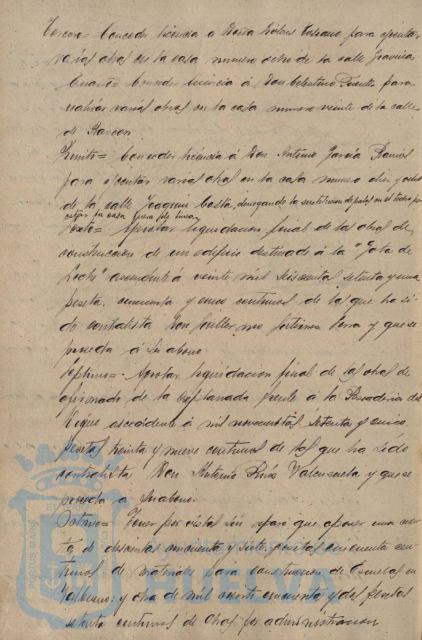 Tercero = Conceder licencia a Doña Dolores para ejecutar
varias obras en la casa numero ocho de la calle Gravina
Cuarto = Conceder licencia á Don Celestino para
realizar varias obras en la casa numero veinte de la calle
de Rascon.
Quinto = Conceder licencia á Don Antonio García Ramos
para ejecutar varias obras en la casa numero diez y ocho
de la calle Joaquin Costa, denegando la sustitucion de palos en el techo por
estar la casa fuera de linea
Sexto = Aprobar liquidacion final de las obras de
construccion de un edificio destinado á la "Gota de
Leche" ascendente á veinte mil seiscientas setenta y una
pesetas cincuenta y cinco centimos de las que ha si-
do contratista Don Guillermo y que se
proceda á su abono
Septimo = Aprobar liquidacion final de las obras de
afirmado de la explanada frente á la Pescaderia del
ascendente á mil novecientas setenta y cinco
pesetas treinta y nueve centimos de las que ha sido
contratista Don Antonio Valenzuela y que se
proceda a su abono.
Octavo = Tener por vistas sin reparo que oponer una cuen-
ta de doscientas cincuenta y siete pesetas cincuenta cen-
timos de materiales para construccion de en
y otra de mil ciento cincuenta y dos pesetas
setenta centimos de obras por administracion
HUELVA